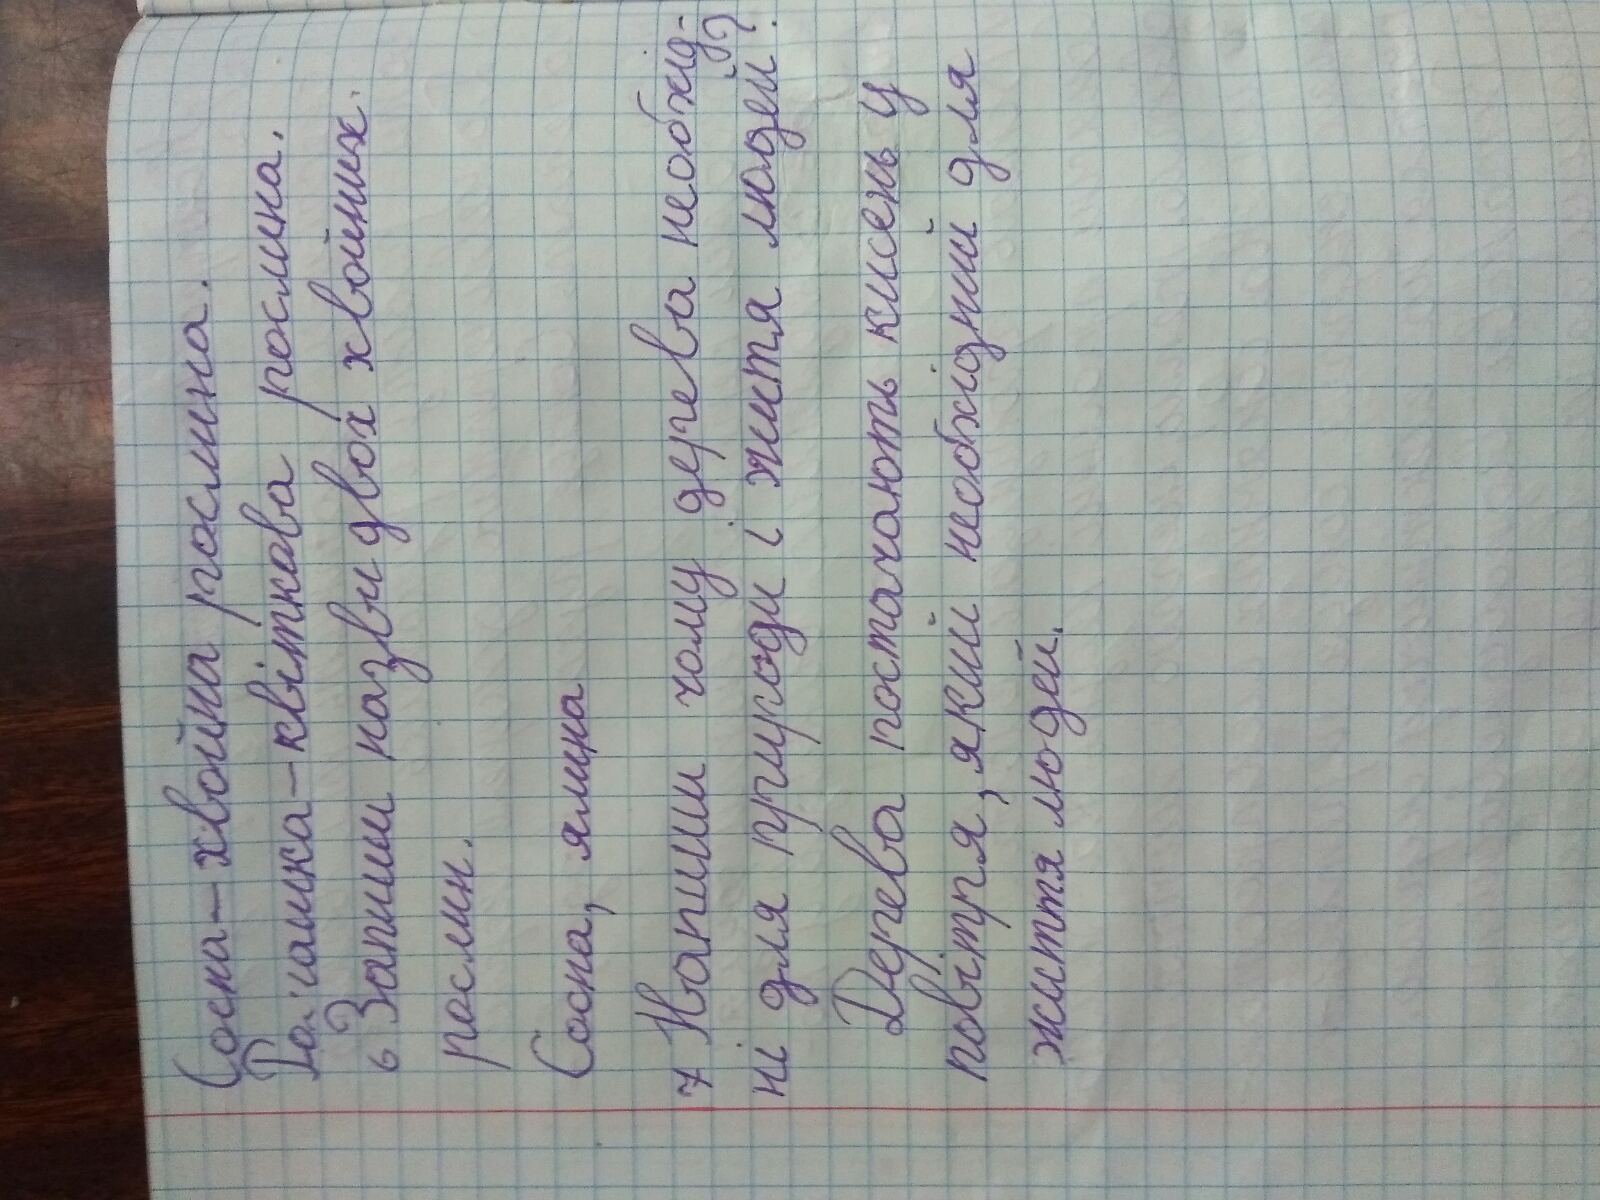 Сосна-хвойна рослина.
Ромашка-квіткова рослина.
6 Запиши назви двох хвойних
рослин.
Сосна, ялина
7 Напиши чому дерева необхід-
ні для природи і життя людей?
Дерева постачають кисень у
повітря, який необхідний для
життя людей.